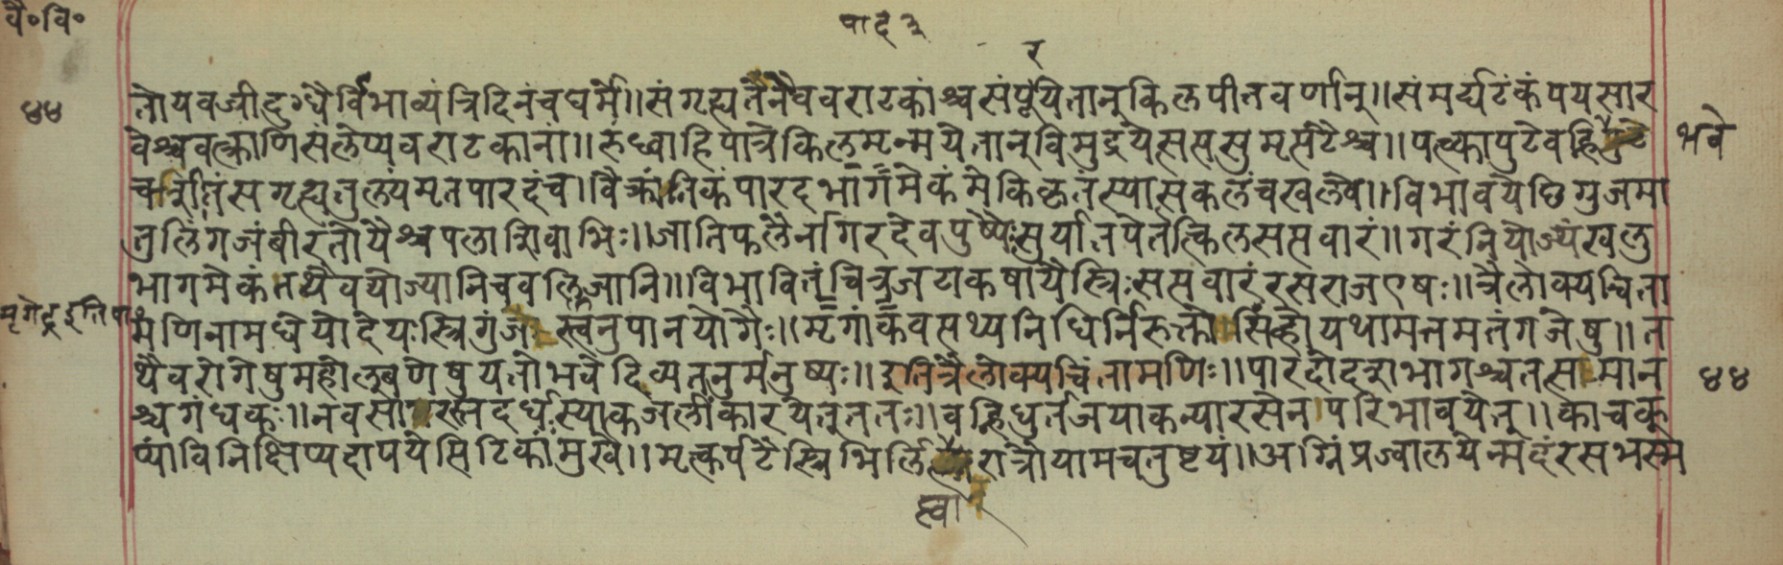 वै॰वि॰
पाद ३
र
तोयवज्रीदुग्धैर्विभाव्यंत्रिदिनंचघर्मे॥संगृह्यतेनैववराटकांश्चसंपूरयेतान्किलपीतवर्णान्॥संमर्द्यटंकंपयसार
४४
वेश्चवत्काणिसंलेप्यवराटकानां॥रुध्वाहिपात्रेकिलमृन्मयेतान्विमुद्रयेत्सप्तसुमृत्पटैश्च॥पत्क्कापुटेवह्नि
भवे
सगृह्यतुलयंमृतपारदंच।वैक्रांतिकंपारदभागमेकंमेकिकृतंस्यासकलंचखल्वे॥विभावयेछिगुजमा
तुलिंगजंबीरंतोयैश्चपलाशिवाभिः॥जातिफलैर्नागरदेवपुष्पैःसुर्यातपेतत्किलसप्तवारं॥गरंनियोज्यंखलु
भागमेकंतथैवयोज्यानिचवल्लिजानि॥विभावितंचित्रजटाकषायैस्त्रिःसप्तवारंरसराजएषः॥त्रैलोक्यचिंता
मृगेंद्रइतिपा॰
मणिनामधेयोदेयःस्त्रिगुंज स्त्वनुपानयोगैः॥मृगांकवसथ्यनिधिर्निरुक्तो सिंहोयथामत्तमतंगजेषु॥त
थैवरोगेषुमहोल्बणेषुयतोभवेदिव्यतनुर्मनुष्यः॥इतित्रैलोक्यचिंतामणिः॥पारदोदशभागश्चतत्समान
४४
श्चगंधकः॥नवसा तदर्धस्यात्कजलींकारयेत्ततः॥वह्निधुर्तजयाकन्यारसेनपरिभावयेत्॥काचकू
प्यांविनिक्षिप्यदापयेसिटिकांमुखे॥मृत्कर्पटैस्त्रिभिर्लि रात्रौयामचतुष्टयं॥अग्निंप्रज्वालयेन्मंदंरसभस्म
त्वा